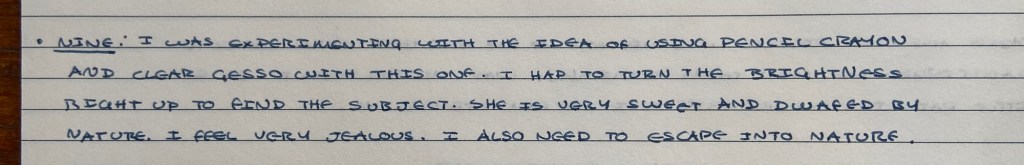 • NINE: I WAS EXPERIMENTING WITH THE IDEA OF USING PENCIL CRAYON
AND CLEAR GESSO WITH THIS ONE. I HAD TO TURN THE BRIGHTNESS
RIGHT UP TO FIND THE SUBJECT. SHE IS VERY SWEET AND DWAFED BY
NATURE. I FEEL VERY JEALOUS. I ALSO NEED TO ESCAPE INTO NATURE.